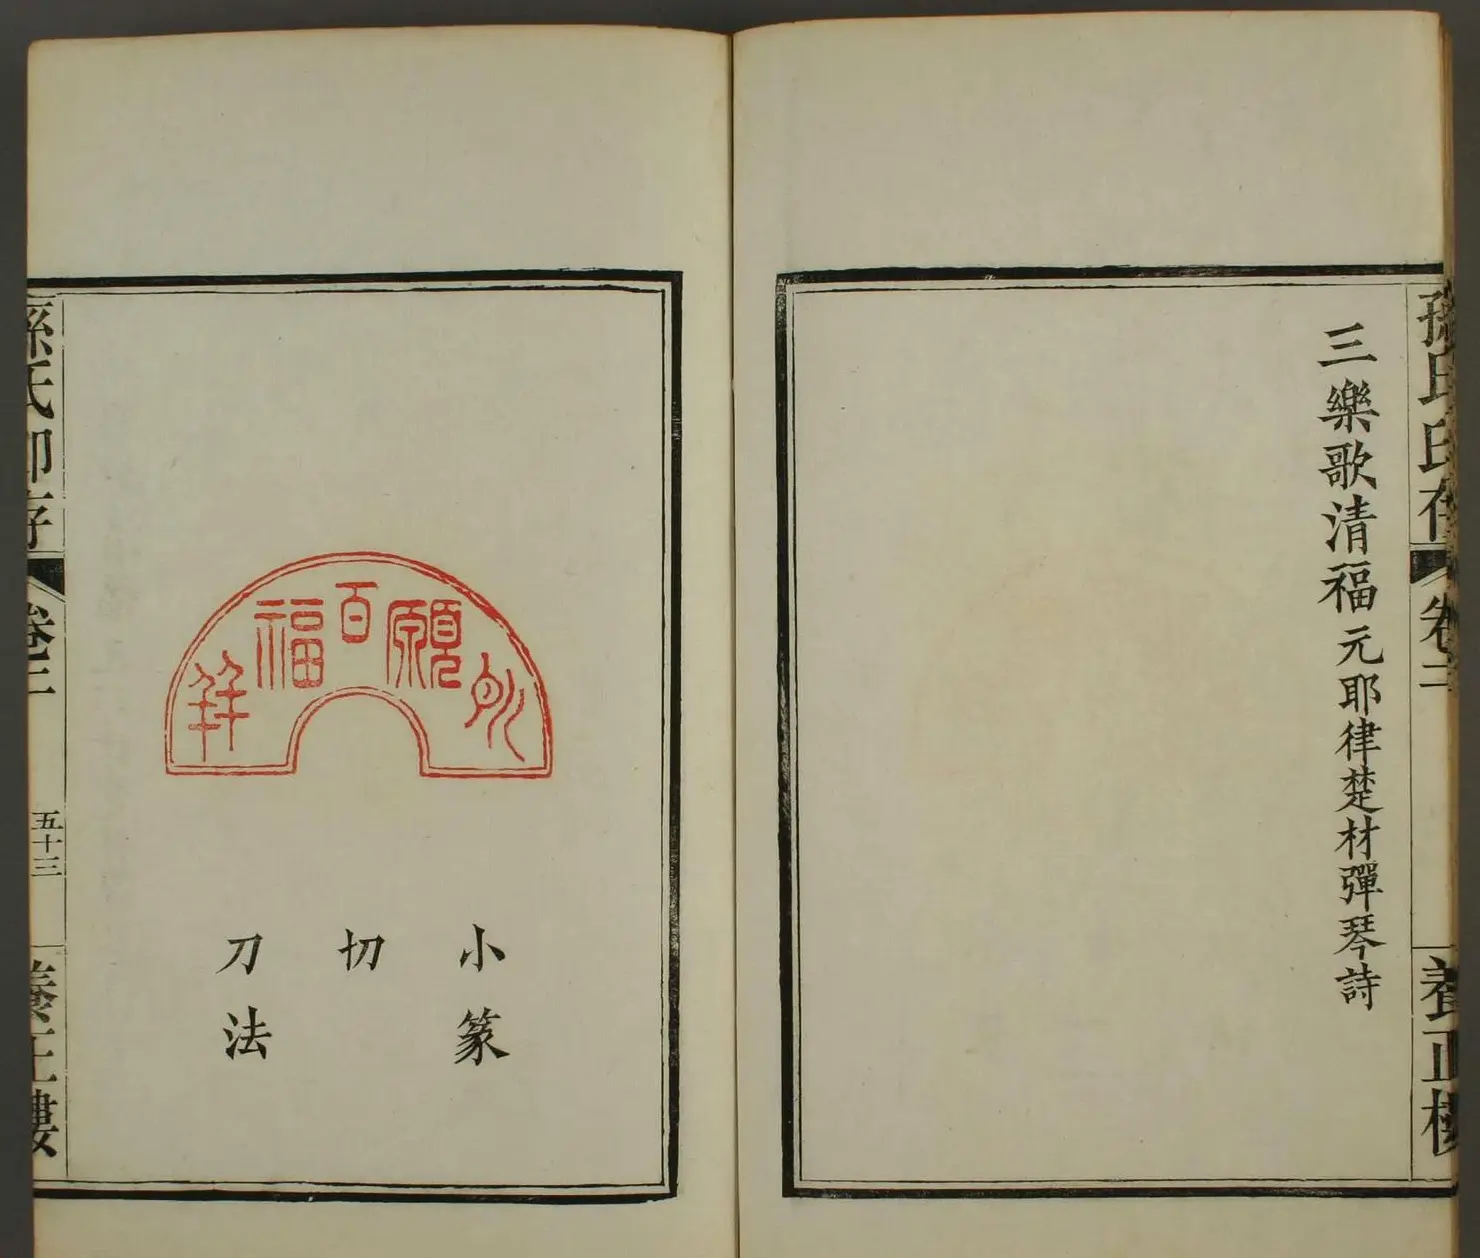 孫氏印存
卷三
養正樓
三樂歌清福元耶律楚材彈琴詩
願百福幷
小篆
切
刀法
孫氏印存
卷三
五十三
養正樓